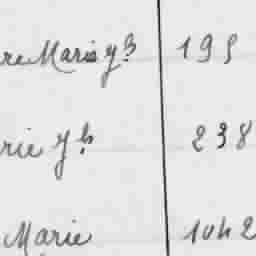 re Marie yb 195
rie yb 238
Marie 1042